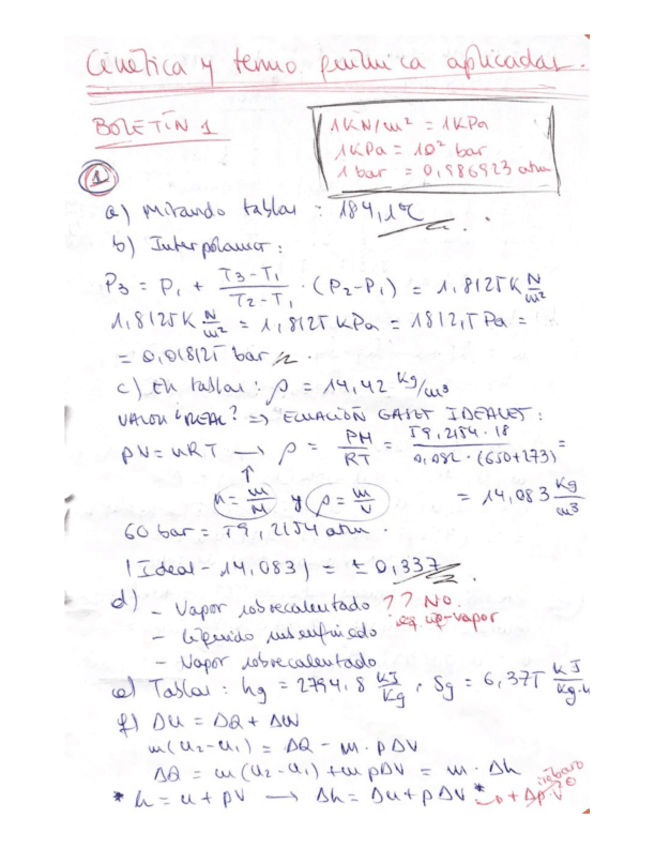 Cinética y termo. química aplicadas.
BOLETÍN 1
1KN/m² = 1KPa
1KPa = 10² bar
1 bar = 0,986923 atm
1
a) Mirando tablas = 184,1ºC
b) Interpolamos:
P₃ = P₁ + (T₃-T₁)/(T₂-T₁) · (P₂-P₁) = 1,8125 K N/m²
1,8125 K N/m² = 1,8125 KPa = 1812,5 Pa =
= 0,018125 bar
c) En tablas: ρ = 14,42 Kg/m³
VALOR ¿REAL? => ECUACIÓN GASES IDEALES:
PV = nRT → ρ = PM/RT = 59,2154 · 18 / 0,082 · (650+273) =
n = m/M y ρ = m/V = 14,083 Kg/m³
60 bar = 59,2154 atm.
|Ideal - 14,083| = ± 0,337
d) - Vapor sobrecalentado ?? NO.
eq. líq-vapor
- Líquido subenfriado
- Vapor sobrecalentado
e) Tablas: hg = 2794,8 KJ/Kg, Sg = 6,375 KJ/Kg·K
f) ΔU = ΔQ + ΔW
m(u₂-u₁) = ΔQ - m·pΔV
ΔQ = m(u₂-u₁) + m pΔV = m · Δh
* h = u + pV → Δh = Δu + pΔV * → + Δp·V isobaro 0